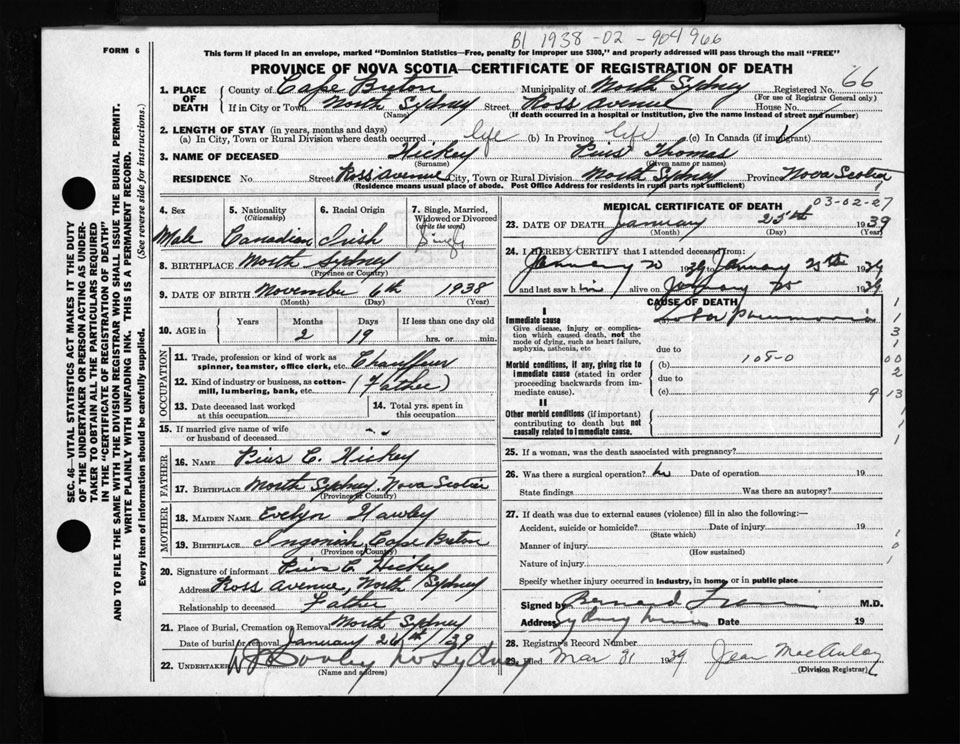 FORM 6
B1 1938-02-904966
This form if placed in an envelope, marked "Dominion Statistics—Free, penalty for improper use $300," and properly addressed will pass through the mail "FREE"
PROVINCE OF NOVA SCOTIA—CERTIFICATE OF REGISTRATION OF DEATH
66
1. PLACE OF DEATH
County of Cape Breton Municipality of North Sydney Registered No.
(For use of Registrar General only)
If in City or Town North Sydney Street Ross Avenue House No.
(Name) (If death occurred in a hospital or institution, give the name instead of street and number)
2. LENGTH OF STAY (in years, months and days)
(a) In City, Town or Rural Division where death occurred life (b) In Province life (c) In Canada (if immigrant)
3. NAME OF DECEASED Hickey Pius Thomas
(Surname) (Given name or names)
RESIDENCE No. Street Ross Avenue City, Town or Rural Division North Sydney Province Nova Scotia
(Residence means usual place of abode. Post Office Address for residents in rural parts not sufficient)
4. Sex Male
5. Nationality (Citizenship) Canadian
6. Racial Origin Irish
7. Single, Married, Widowed or Divorced (write the word) Single
8. BIRTHPLACE North Sydney
(Province or Country)
9. DATE OF BIRTH November 6th 1938
(Month) (Day) (Year)
10. AGE in Years Months Days If less than one day old
2 19 hrs. or min.
OCCUPATION
11. Trade, profession or kind of work as spinner, teamster, office clerk, etc. Chauffeur
12. Kind of industry or business, as cotton-mill, lumbering, bank, etc. (Father)
13. Date deceased last worked at this occupation
14. Total yrs. spent in this occupation
15. If married give name of wife or husband of deceased
FATHER
16. NAME Pius C. Hickey
17. BIRTHPLACE North Sydney Nova Scotia
(Province or Country)
MOTHER
18. MAIDEN NAME Evelyn Hawley
19. BIRTHPLACE Ingonish, Cape Breton
(Province or Country)
20. Signature of informant Pius C. Hickey
Address Ross Avenue, North Sydney
Relationship to deceased Father
21. Place of Burial, Cremation or Removal North Sydney
Date of burial or removal January 26th 1939
22. UNDERTAKER No Sydney
(Name and address)
MEDICAL CERTIFICATE OF DEATH
03-02-27
23. DATE OF DEATH January 25th 1939
(Month) (Day) (Year)
24. I HEREBY CERTIFY that I attended deceased from:
January 20 1939 to January 25th 1939
and last saw him alive on January 25 1939
CAUSE OF DEATH
I
Immediate cause (a) Lobar Pneumonia
Give disease, injury or complication which caused death, not the mode of dying, such as heart failure, asphyxia, asthenia, etc
due to
Morbid conditions, if any, giving rise to immediate cause (stated in order proceeding backwards from immediate cause).
(b) 108-0
due to
(c)
II
Other morbid conditions (if important) contributing to death but not causally related to immediate cause.
1
1
3
1
00
2
9 13
1
1
1
25. If a woman, was the death associated with pregnancy?
26. Was there a surgical operation? no Date of operation 19
State findings Was there an autopsy?
27. If death was due to external causes (violence) fill in also the following:—
Accident, suicide or homicide? Date of injury 19
(State which)
Manner of injury
(How sustained)
Nature of injury
Specify whether injury occurred in Industry, in home, or in public place
1
0
1
Signed by Bernard M.D.
Address Sydney Mines Date 19
28. Registrar's Record Number
29. Filed Mar 31 1939 Jean MacAulay
(Division Registrar)
SEC. 46—VITAL STATISTICS ACT MAKES IT THE DUTY
OF THE UNDERTAKER OR PERSON ACTING AS UNDERTAKER
TO OBTAIN ALL THE PARTICULARS REQUIRED
IN THE "CERTIFICATE OF REGISTRATION OF DEATH"
AND TO FILE THE SAME WITH THE DIVISION REGISTRAR WHO SHALL ISSUE THE BURIAL PERMIT.
WRITE PLAINLY WITH UNFADING INK. THIS IS A PERMANENT RECORD.
Every item of information should be carefully supplied. (See reverse side for instructions.)